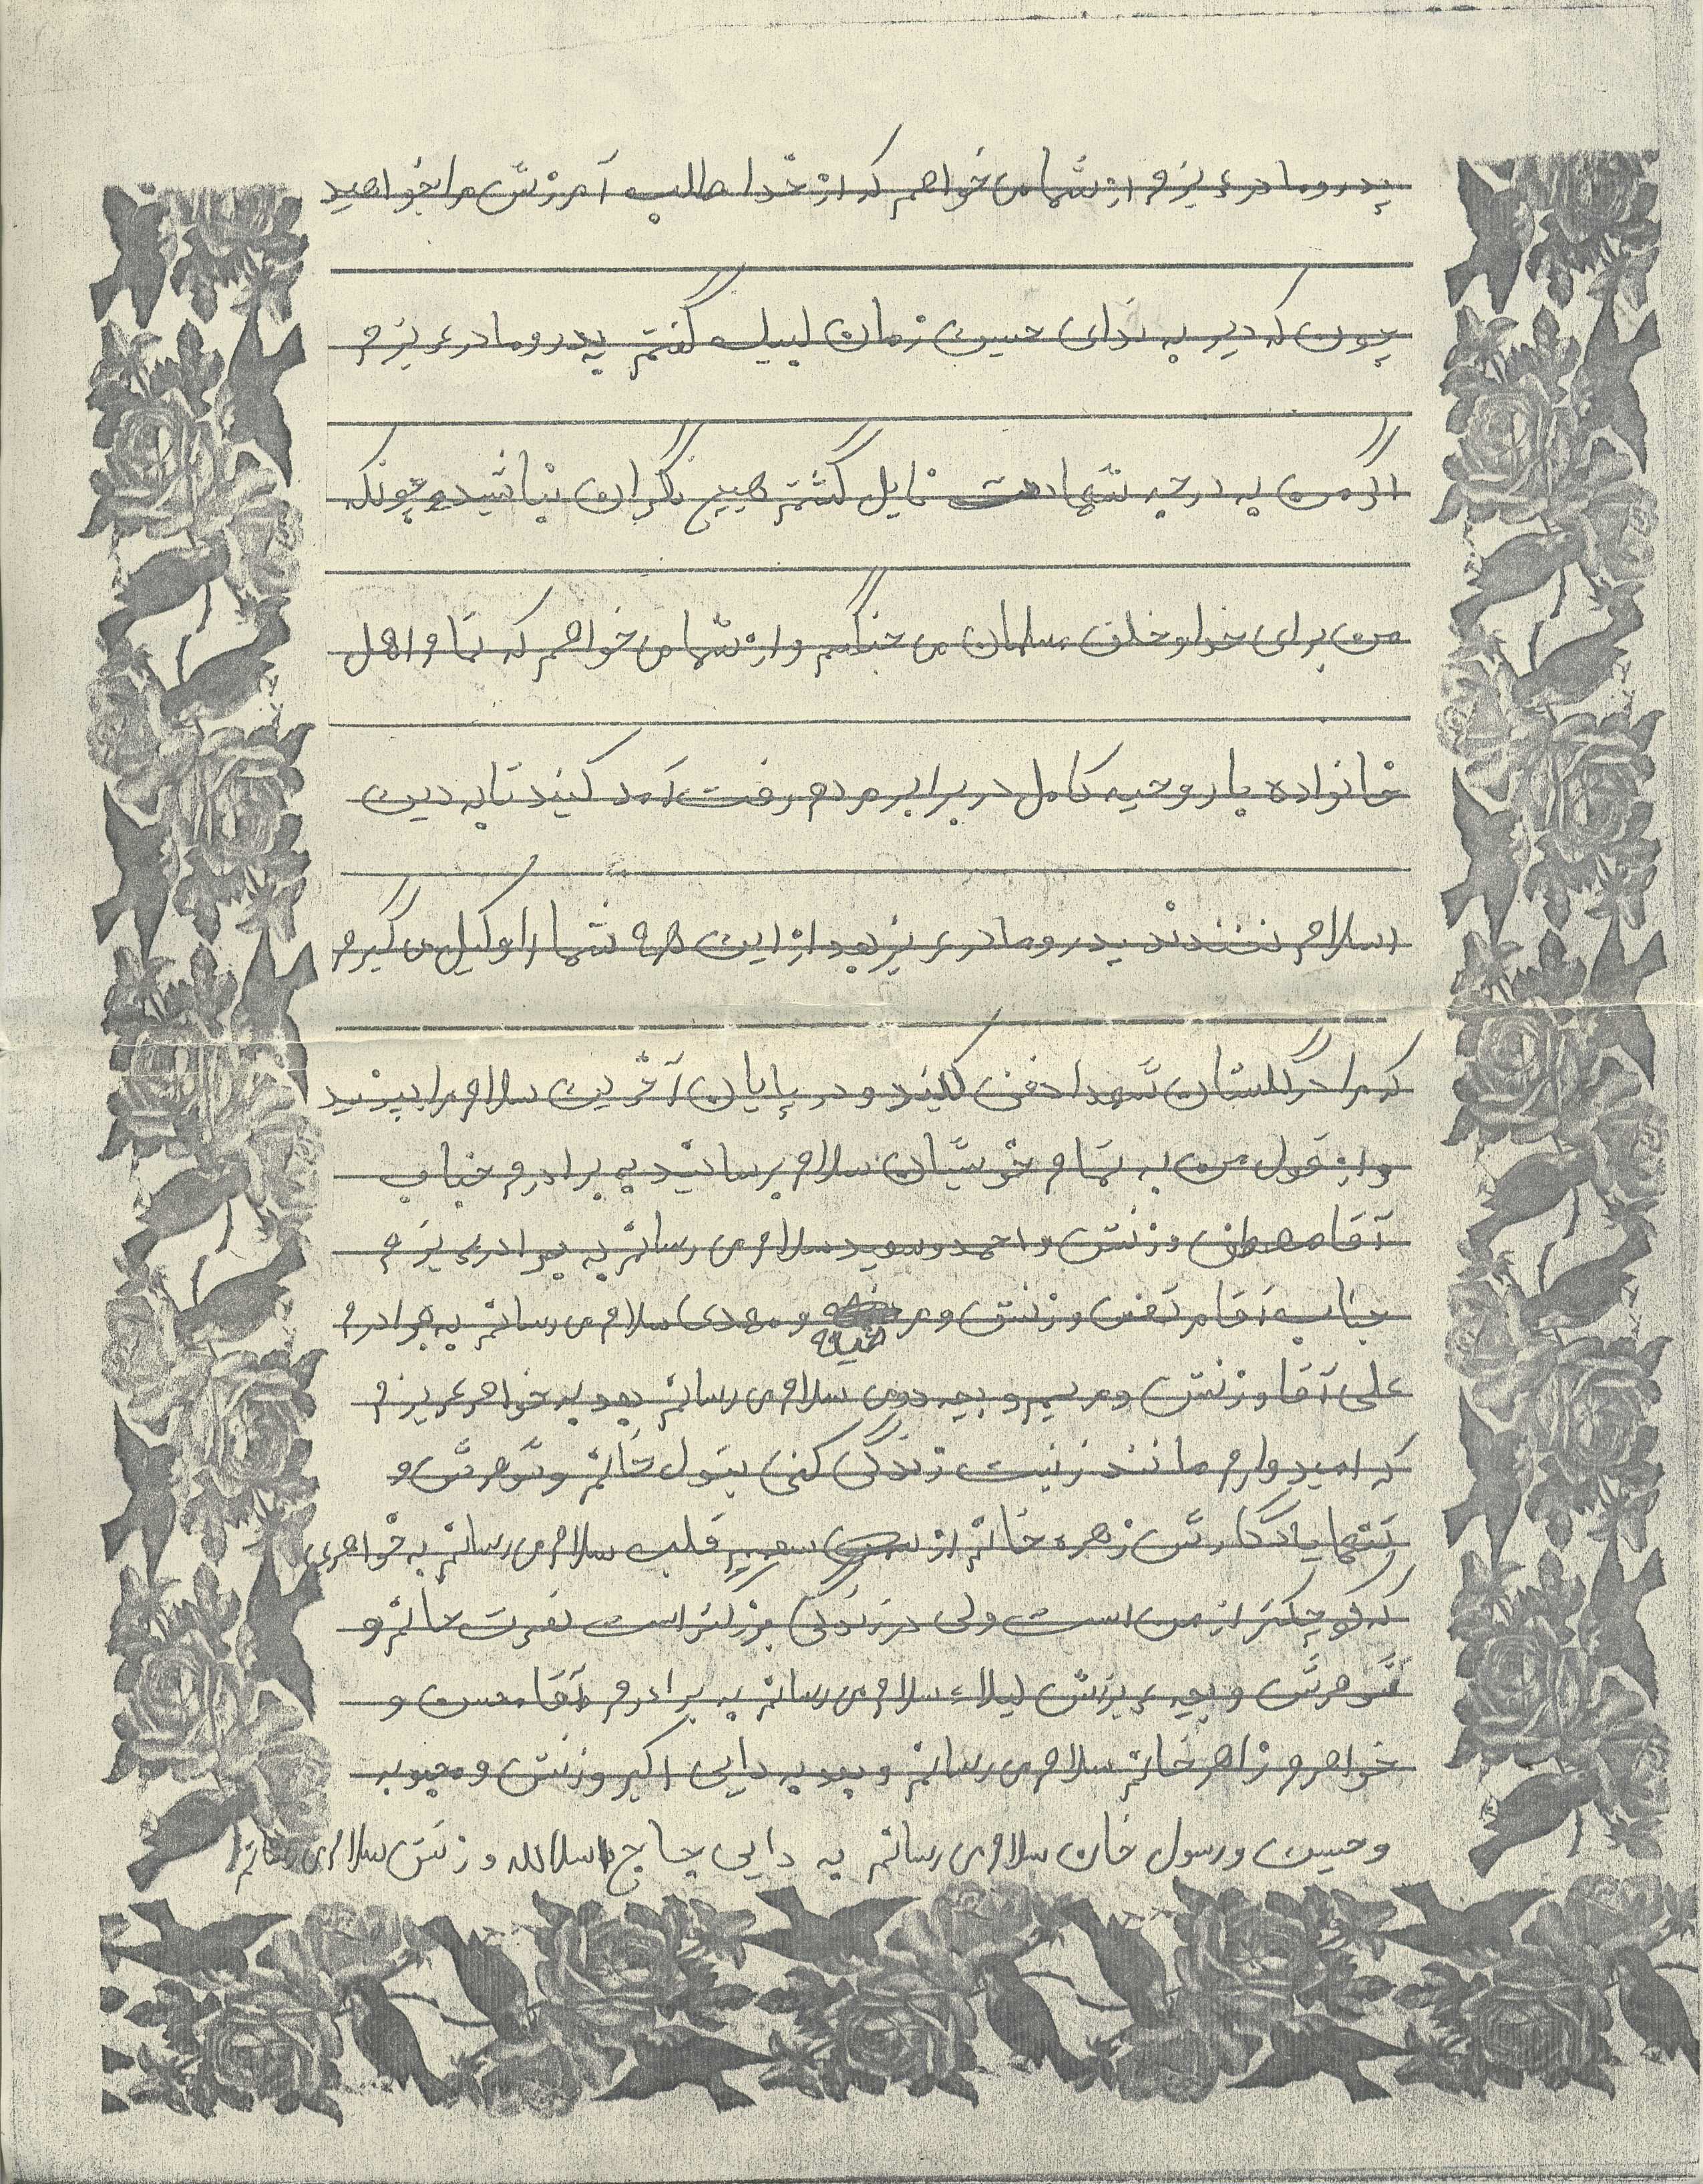 پدر و مادر عزیزم از شما می خواهم که از خدا طلب آمرزش مرا بخواهید
چون که دیر به ندای حسین زمان لبیک گفتم پدر و مادر عزیزم
اگر من به درجه شهادت نایل گشتم هیچ نگران نباشید چونکه
من برای خدا و خلق مسلمان می جنگم و از شما می خواهم که تمام اهل
خانواده با روحیه کامل در برابر مردم رفت آمد کنید تا به دین
اسلام نخندند پدر و مادر عزیز بعد از این همه شما را وکیل می گیرم
که مرا در گلستان شهدا دفن کنید و در پایان آخرین سلام مرا بپزید
و از قول من به تمام خوشیان سلام برسانید به برادرم جناب
آقا مصطفی و زنش و احمد و سعید سلام می رسانم به برادر عزیزم
جناب آقا مرتضی و زنش و مرضیه و مهدی سلام می رسانم به برادرم
علی آقا و زنش و مریم و بچه دومی سلام می رسانم بعد به خواهر عزیزم
که امیدوارم مانند زینب زندگی کنی بتول خانم و شوهرش و
تنها یادگارش زهره خانم از صمیم قلب سلام می رسانم به خواهری
که کوچکتر از من است ولی در زندگی بزرگتر است نصرت خانم و
شوهرش و بچه عزیزش لیلاء سلام می رسانم به برادرم آقا محسن و
خواهرم زاهر خانم سلام می رسانم و بعد به دایی اکبر و زنش و محبوبه
و حسین و رسول خان سلام می رسانم به دایی حاج اسدالله و زنش سلام می رسانم